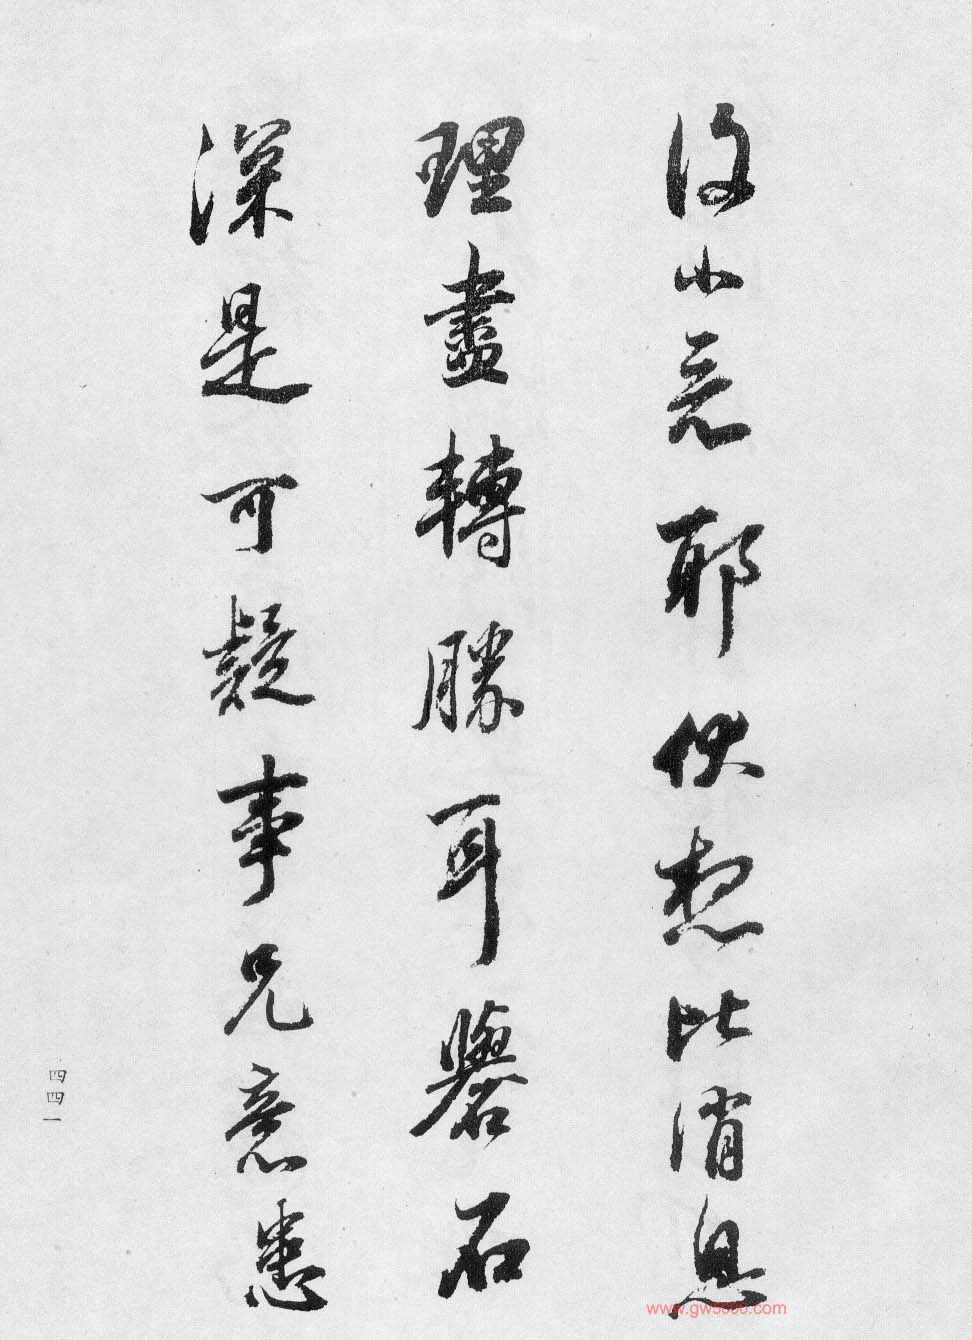 復小覺耶伏想比消息
理盡轉勝耳礜石
深是可疑事兄意患
四四一
www.gw5000.com